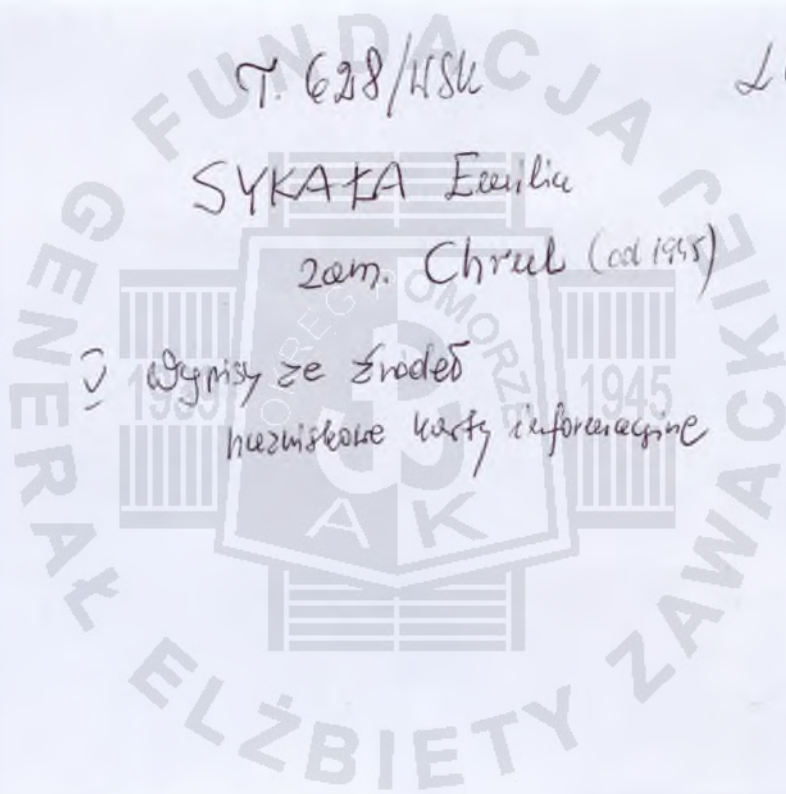 T. 628/WSK
SYKAŁA Emilia
zam. Chrul (od 1945)
V Wypisy ze źródeł
nazwiskowe karty informacyjne
FUNDACJA GENERAŁ ELŻBIETY ZAWACKIEJ
OKRĘG POMORZE
1939 1945
AK